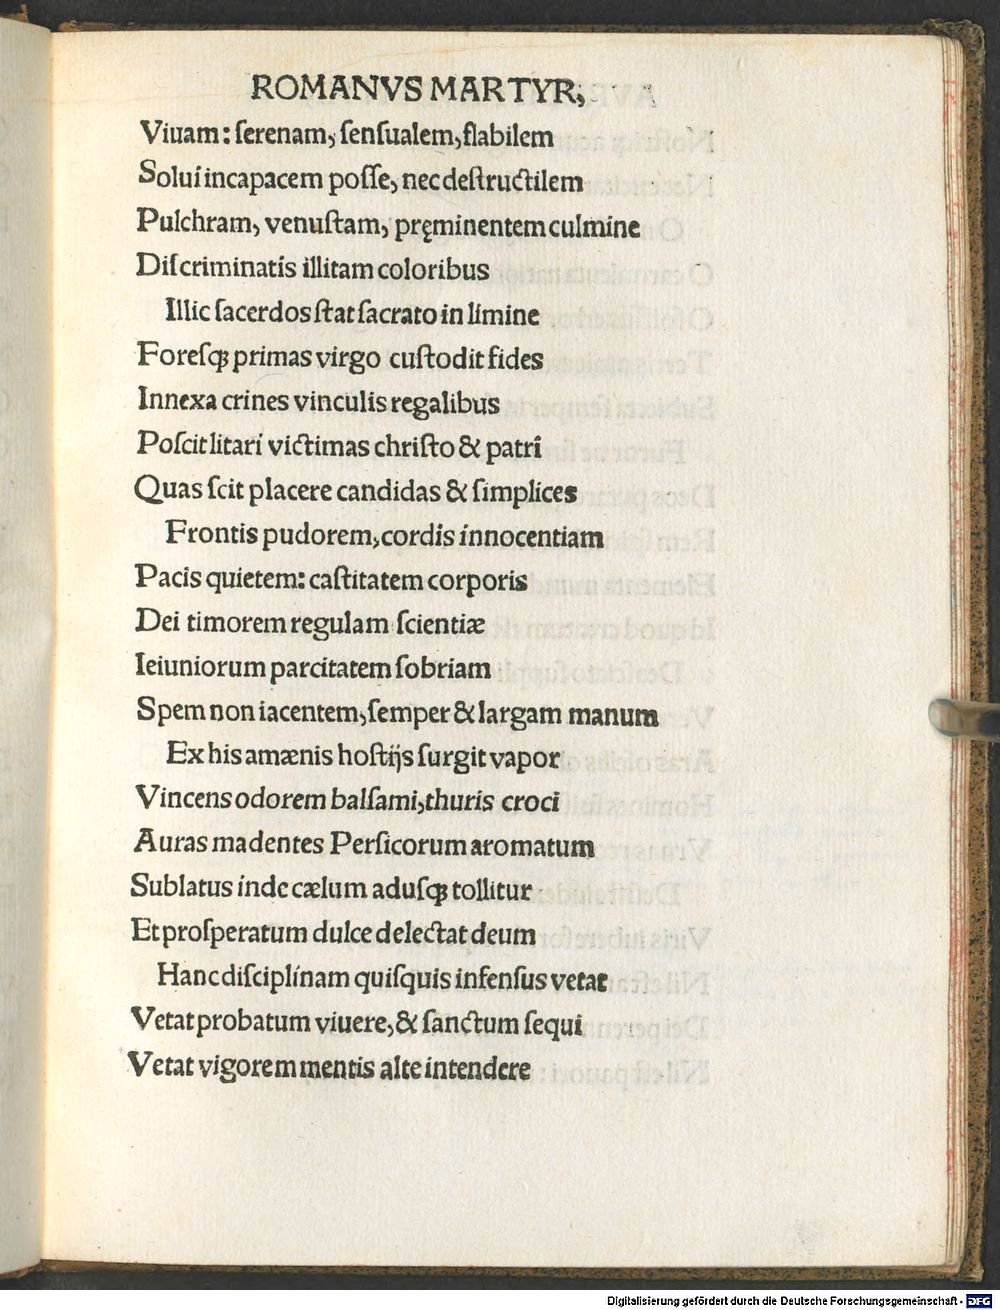 ROMANVS MARTYR,
Viuam: ſerenam, ſenſualem, flabilem
Solui incapacem poſſe, nec deſtructilem
Pulchram, venuſtam, pręminentem culmine
Diſcriminatis illitam coloribus
Illic ſacerdos ſtat ſacrato in limine
Foreſqꝫ primas virgo cuſtodit fides
Innexa crines vinculis regalibus
Poſcit litari victimas chriſto & patri
Quas ſcit placere candidas & ſimplices
Frontis pudorem, cordis innocentiam
Pacis quietem: caſtitatem corporis
Dei timorem regulam ſcientiæ
Ieiuniorum parcitatem ſobriam
Spem non iacentem, ſemper & largam manum
Ex his amænis hoſtijs ſurgit vapor
Vincens odorem balſami, thuris croci
Auras madentes Perſicorum aromatum
Sublatus inde cælum aduſqꝫ tollitur
Et proſperatum dulce delectat deum
Hanc diſciplinam quiſquis infenſus vetat
Vetat probatum viuere, & ſanctum ſequi
Vetat vigorem mentis alte intendere
Digitalisierung gefördert durch die Deutsche Forschungsgemeinschaft - DFG